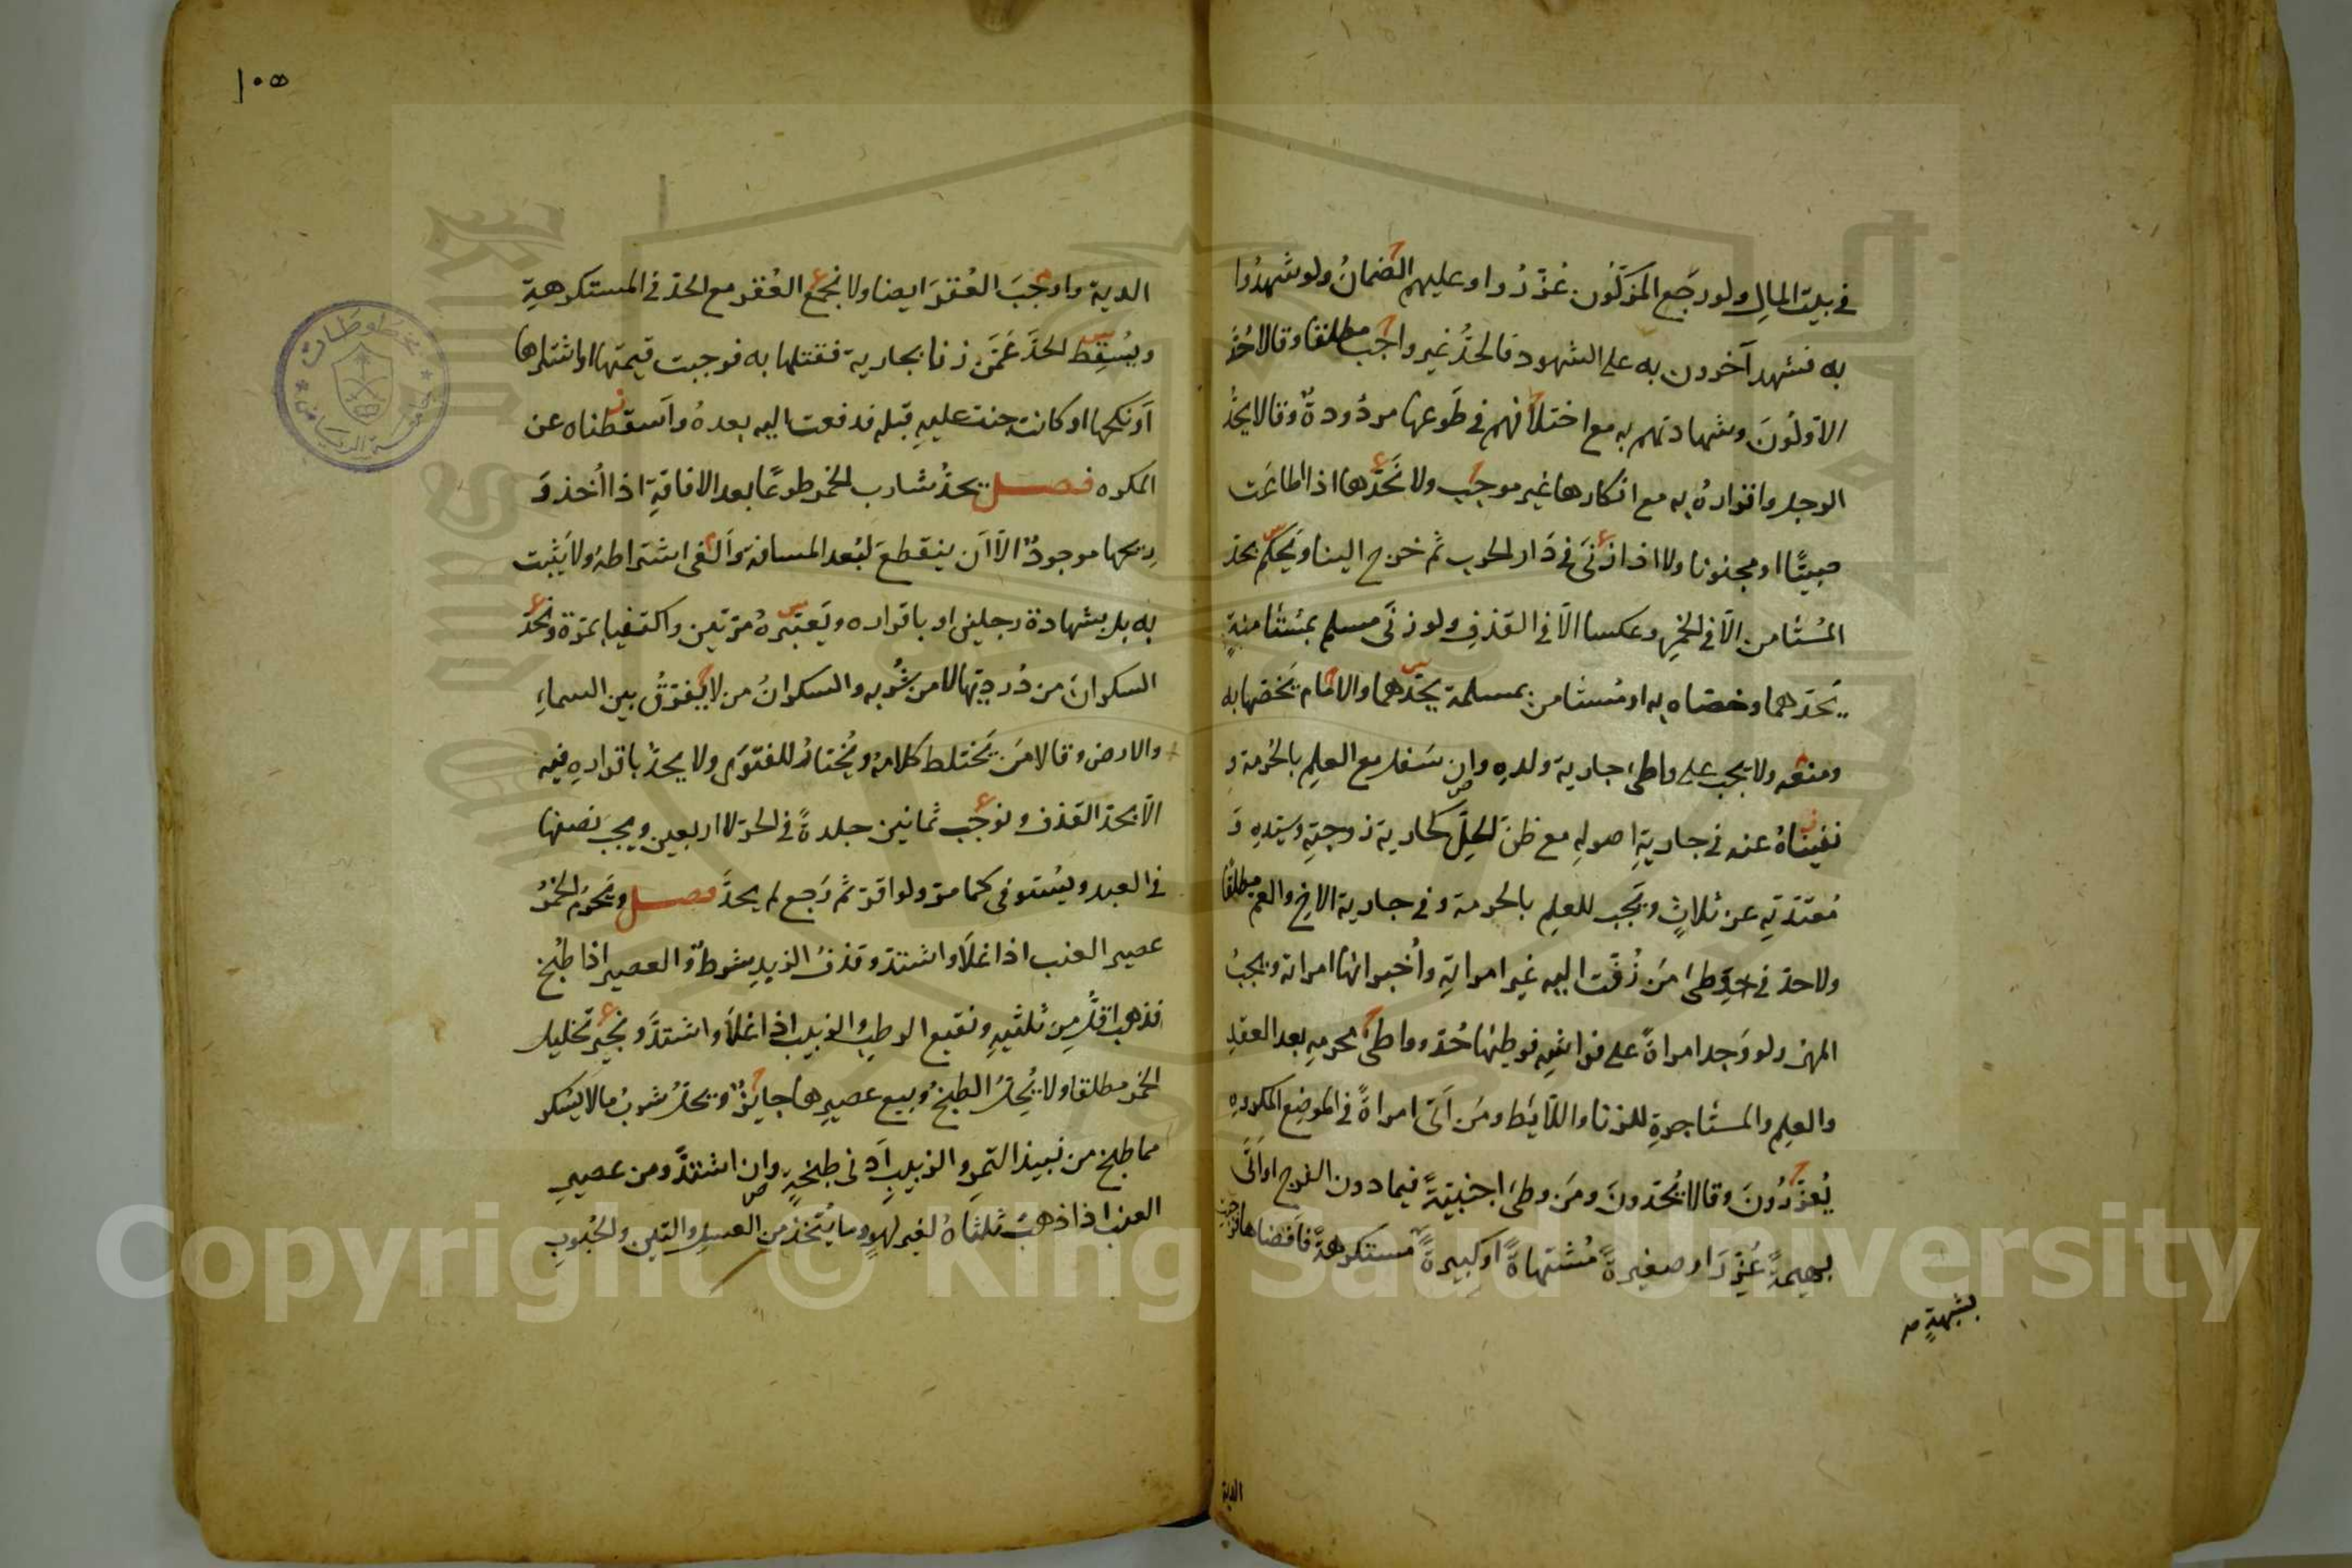 في بيت المال ولو رجع المزكّون عُزّروا وعليهم الضمانُ ولو شهدُوا
به فشهد آخرون به على الشهود فالحدُّ غير واجب مطلقا وقالا حُدّ
الاوّلُونَ وشهادتهم به مع اختلافهم في طَوعها مردُودةٌ وقالا يحدُّ
الرجل واقرارهُ به مع انكارها غير موجب ولا نَحُدُّها اذا طاعَت
صبيًّا او مجنونا ولا اذا زنَى في دَار الحرب ثم خرج الينا ويَحكم بحدّ
المُستَامن الّا في الخمرِ وعكسا الّا في القذفِ ولو زنَى مسلم بمُستَامنةٍ
يَحدّهما وخصّاه به او مُستَامن بمسلمة يحدّهما والامام يَخصّها به
ومنعه ولا يجب على واطئ جارية ولدهِ وان سَفل مع العلمِ بالحُرمة و
نفيناهُ عنه في جاريةِ اصولهِ مع ظنّ الحِلّ كجارية زوجتهِ وسيّدهِ وَ
مُعتدّتهِ عن ثلاثٍ ويَجب للعلم بالحرمة وفي جارية الاخ والعم مطلقًا
ولا حدّ في وطئ مَن زُفّت اليه غير امراتهِ وأُخبر انها امراته ويجبُ
المهر ولو وَجد امراةً على فراشهِ فوطئها حُدّ وواطئ محرمهِ بعد العقدِ
والعلمِ والمستَاجرةِ للزنا واللّايطُ ومَن اَتَى امراةً في الموضِع المكروهِ
يُعزّرُونَ وقالا يُحَدّونَ ومَن وطئ اجنبيّةً فيما دون الفرج او اَتَى
بهيمةً عُزّرَ او صغيرةً مُشتهاةً او كبيرةً مستكرهةً فافضاها فوجبت
بشبهةٍ صح
الدية
١٠٥
الدية واوجَبَ العُقرَ ايضا ولا نجمع العُقر مع الحدّ في المستكرهةِ
ويُسقِط الحدَّ عَمَّن زنا بجارية فقتلها به فوجبت قيمتها او اشتراها
اَو نكحها او كانت جنت عليهِ قبله فدفعت اليه بعدهُ واَسقطناه عن
المكره فصل يحدُّ شارب الخمر طوعًا بعد الافاقةِ اذا اُخذ وَ
رِيحها موجودٌ الّا اَن ينقطعَ لبُعد المسافة واَلغى اشتراطهُ ولا يَثبت
به بل بشهادة رجلين او باقراره ويَعتبرهُ مرّتين واكتفيا بمرّة ونَحُدّ
السكرانَ من دُردِيّها لا من شُربه والسكرانُ من لا يفرّقُ بين السماءِ
والارض وقالا مَن يَختلط كلامهُ ويُختارُ للفتوَى ولا يحدّ باقرارهِ فيه
الّا بحدّ القذف ونوجب ثمانين جلدةً في الحرّ لا اربعين ويجبَ نصفها
في العبد ويُستوفى كما مرّ ولو اقرّ ثم رَجع لم يحدَّ فصل ويَحرُم الخمرُ
عصير العنب اذا غلَا واشتدّ وقذفُ الزبدِ شرطٌ والعصير اذا طُبخ
فذهب اقلُّ من ثلثيهِ ونقيع الرطبِ والزبيب اذا غلَا واشتدَّ ونجيز تخليل
الخمر مطلقا ولا يُحِلُّ الطبخُ وبيع عصيرها جايزٌ ويحلّ شربُ ما لا يُسكر
مما طبخ من نبيذ التمرِ والزبيبِ اَدنى طبخةٍ وان اشتدَّ ومن عصيرِ
العنب اذا ذهبَ ثلثاهُ لغير لهوٍ وما يُتخذ من العسلِ والتين والحُبُوبِ